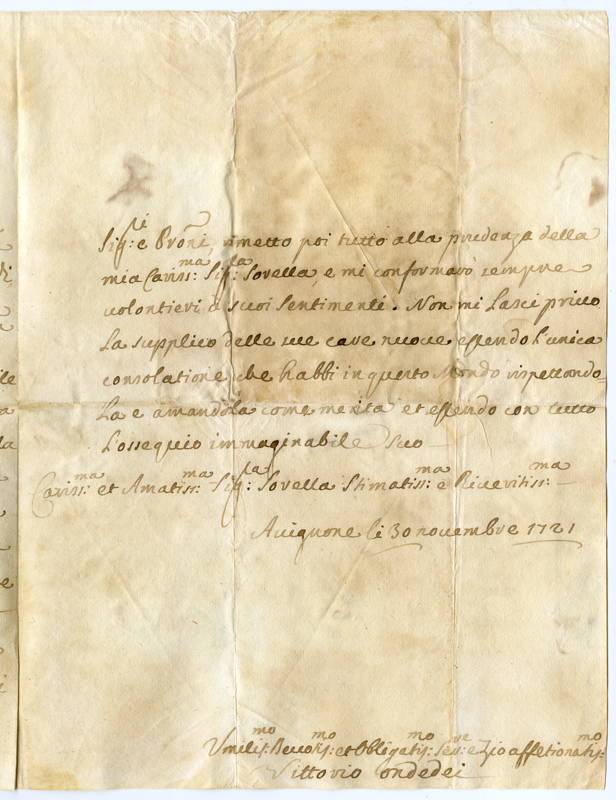 Sig:ri e Pro̅ni, rimetto poi tutto alla prudenza della
mia Cariss:ma Sig:ra Sorella, e mi conformarò sempre
volontieri a suoi Sentimenti. Non mi Lasci privo
La supplico delle sue care nuove essendo l'unica
consolatione che habbi in questo Mondo rispettando=
La e amandola come merita et essendo con tutto
L'ossequio immaginabile Suo
Cariss:ma et Amatiss:ma Sig:ra Sorella Stimatiss:ma e Riveritiss:ma
Avignone li 30 novembre 1721
Umilis:mo et Obligatis:mo Ser:re e Zio affetionatis:mo
Vittorio ondedei